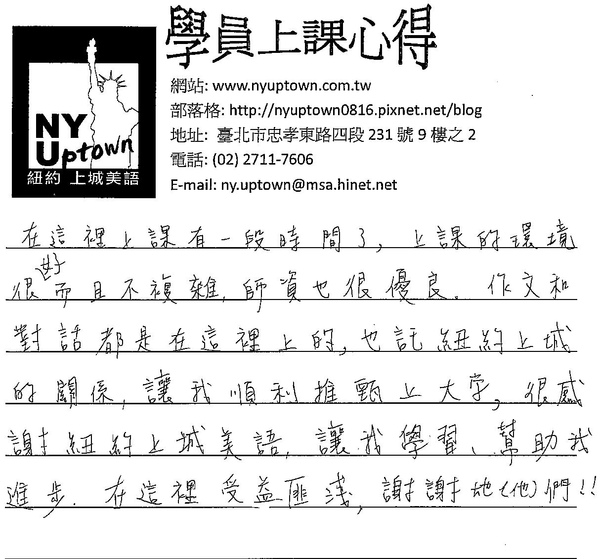 學員上課心得
NY
Uptown
紐約 上城美語
網站: www.nyuptown.com.tw
部落格: http://nyuptown0816.pixnet.net/blog
地址: 臺北市忠孝東路四段 231 號 9 樓之 2
電話: (02) 2711-7606
E-mail: ny.uptown@msa.hinet.net
在這裡上課有一段時間了, 上課的環境
很好而且不複雜, 師資也很優良. 作文和
對話都是在這裡上的, 也託紐約上城
的關係, 讓我順利推甄上大学, 很感
謝紐約上城美語, 讓我學習、幫助我
進步. 在這裡受益匪淺, 謝謝她(他)們!!